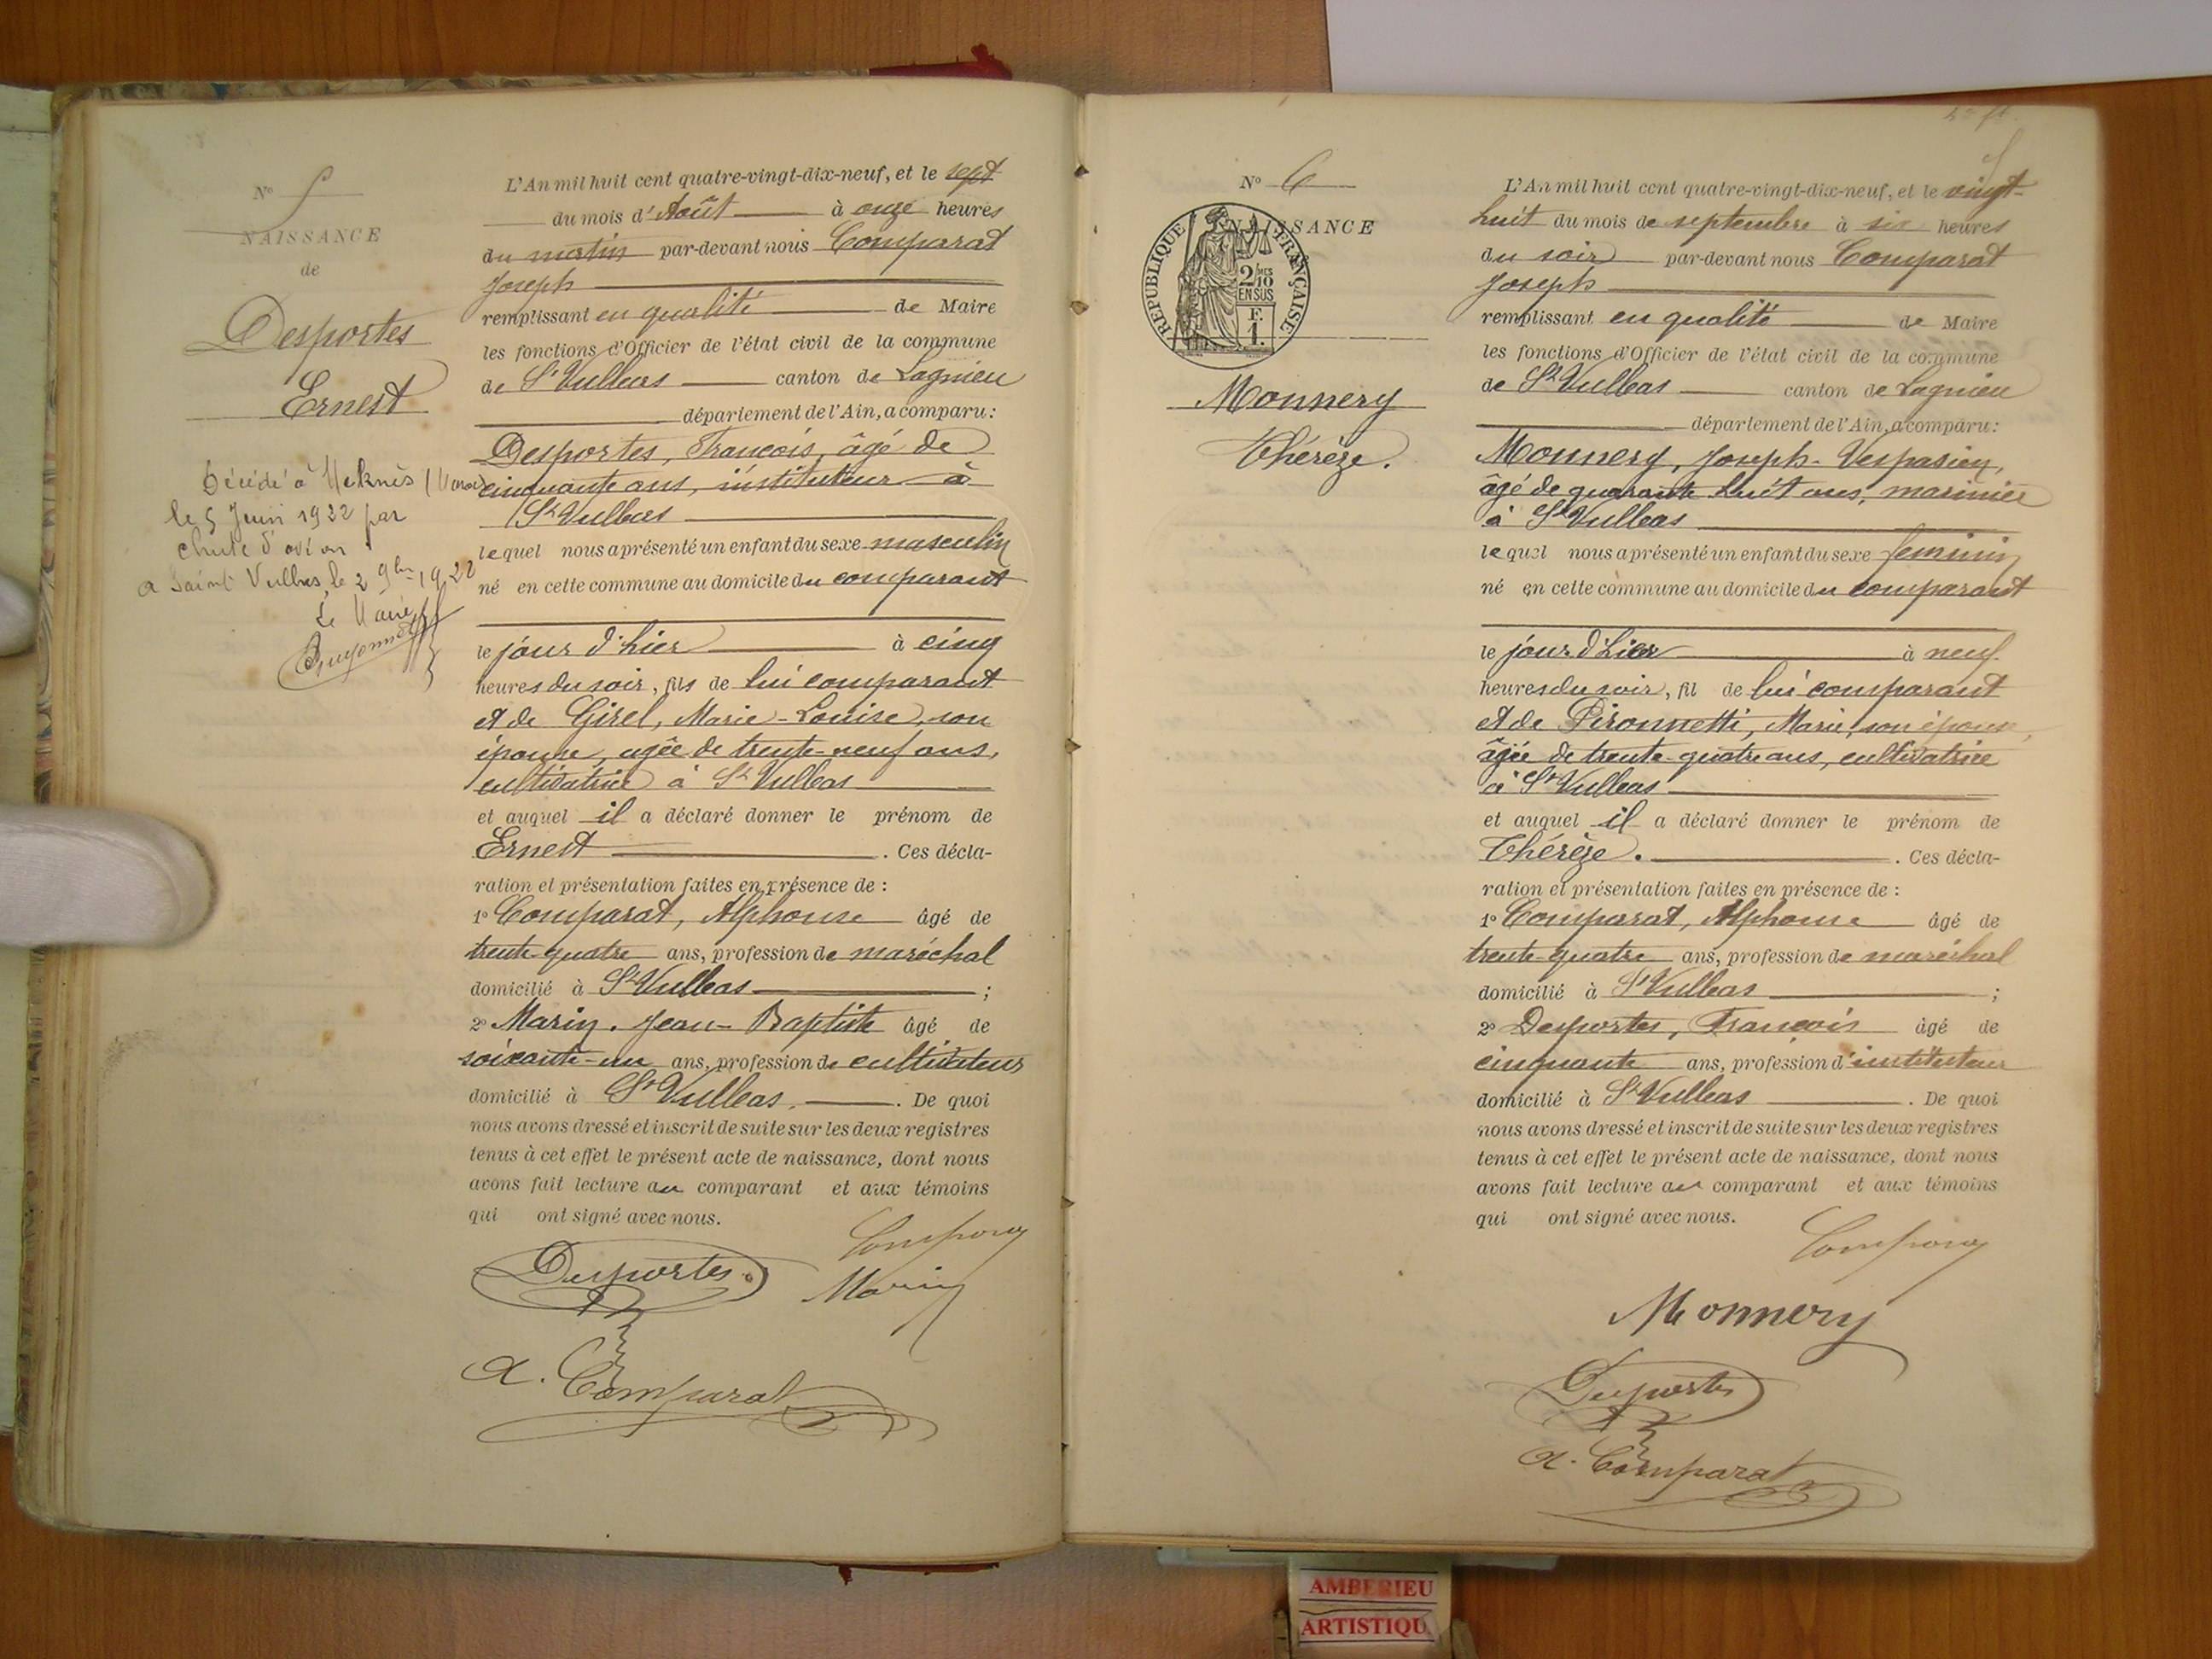 N° 5
NAISSANCE
de
Desportes
Ernest
Décédé à Meknès (Maroc)
le 5 Juin 1922 par
chute d'avion
a Saint Vulbas, le 2 9bre 1922
Le Maire
L'An mil huit cent quatre-vingt-dix-neuf, et le sept
du mois d'Août à onze heures
du matin par-devant nous Comparat
Joseph
remplissant en qualité de Maire
les fonctions d'Officier de l'état civil de la commune
de St Vulbas canton de Lagnieu
département de l'Ain, a comparu:
Desportes, François, âgé de
cinquante ans, instituteur à
St Vulbas
lequel nous a présenté un enfant du sexe masculin
né en cette commune au domicile du comparant
le jour d'hier à cinq
heures du soir, fils de lui comparant
et de Girel, Marie-Louise, son
épouse, agée de trente-neuf ans,
cultivatrice à St Vulbas
et auquel il a déclaré donner le prénom de
Ernest . Ces décla-
ration et présentation faites en présence de :
1° Comparat, Alphonse âgé de
trente-quatre ans, profession de maréchal
domicilié à St Vulbas ;
2° Marin, Jean-Baptiste âgé de
soixante-un ans, profession de cultivateur
domicilié à St Vulbas. . De quoi
nous avons dressé et inscrit de suite sur les deux registres
tenus à cet effet le présent acte de naissance, dont nous
avons fait lecture au comparant et aux témoins
qui ont signé avec nous.
Desportes
Marin
A. Comparat
N° 6
NAISSANCE
REPUBLIQUE FRANÇAISE
2/10 MES
EN SUS
F.
1.
Monnery
Thérèze.
L'An mil huit cent quatre-vingt-dix-neuf, et le vingt-
huit du mois de septembre à six heures
du soir par-devant nous Comparat
Joseph
remplissant en qualité de Maire
les fonctions d'Officier de l'état civil de la commune
de St Vulbas canton de Lagnieu
département de l'Ain, a comparu:
Monnery, Joseph-Vespasien,
âgé de quarante huit ans, marinier
à St Vulbas
lequel nous a présenté un enfant du sexe feminin
né en cette commune au domicile du comparant
le jour d'hier à neuf
heures du soir, fil de lui comparant
et de Pironnetti, Marie, son épouse,
âgée de trente-quatre ans, cultivatrice
à St Vulbas
et auquel il a déclaré donner le prénom de
Thérèze. . Ces décla-
ration et présentation faites en présence de :
1° Comparat, Alphonse âgé de
trente-quatre ans, profession de maréchal
domicilié à St Vulbas ;
2° Desportes, François âgé de
cinquante ans, profession d'instituteur
domicilié à St Vulbas . De quoi
nous avons dressé et inscrit de suite sur les deux registres
tenus à cet effet le présent acte de naissance, dont nous
avons fait lecture au comparant et aux témoins
qui ont signé avec nous.
Monnery
Desportes
A. Comparat
AMBERIEU
ARTISTIQU